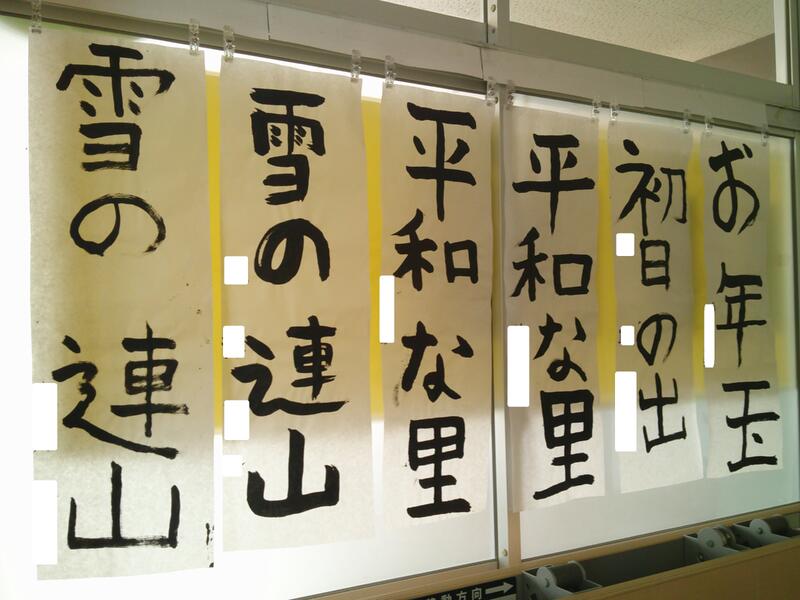 お年玉
初日の出
平和な里
平和な里
雪の連山
雪の連山
動方向